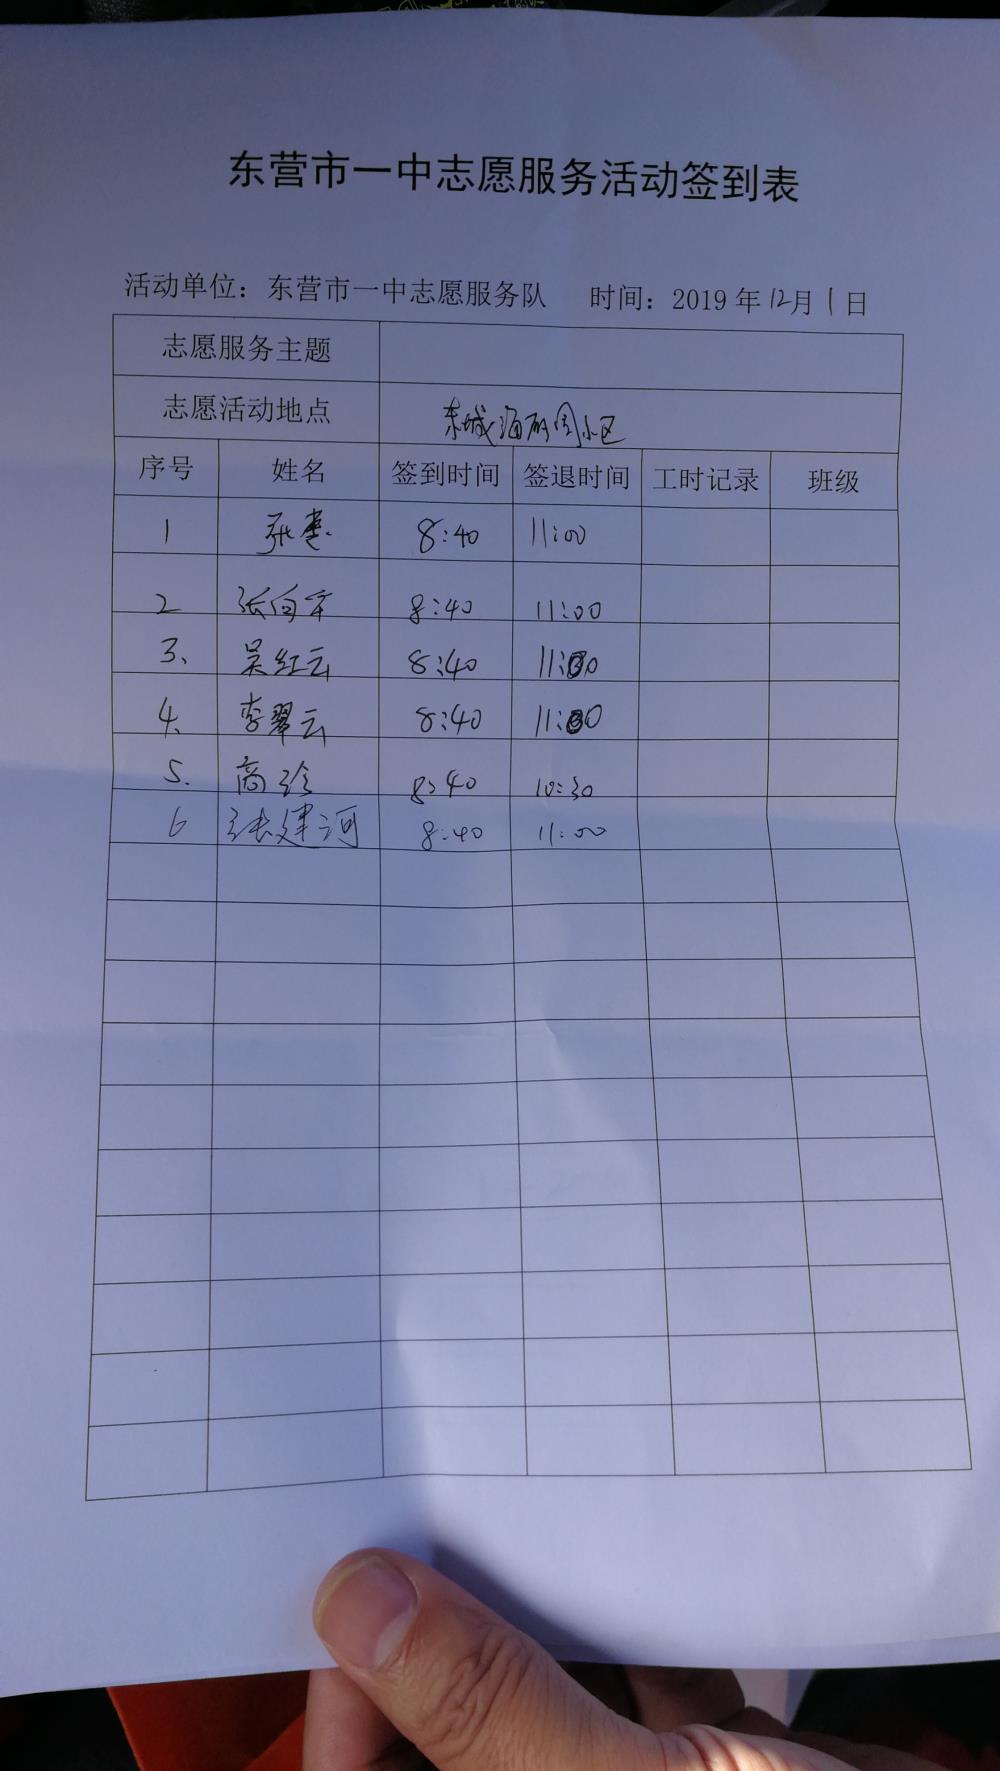 东营市一中志愿服务活动签到表
活动单位：东营市一中志愿服务队 时间：2019年12月1日
志愿服务主题
志愿活动地点 东城海 小区
序号 姓名 签到时间 签退时间 工时记录 班级
1 张 8:40 11:00
2 张向军 8:40 11:00
3、 吴红云 8:40 11:00
4. 李翠云 8:40 11:00
5. 高珍 8:40 10:30
6 张建河 8:40 11:00